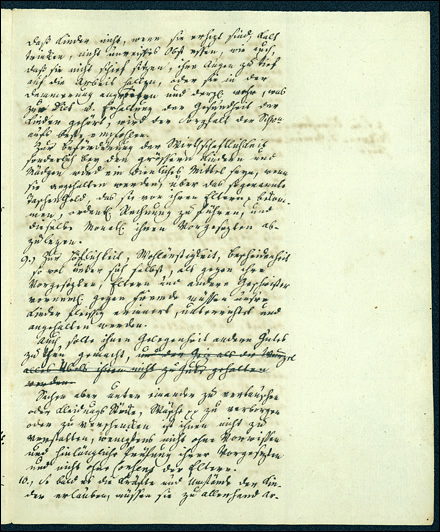 daß Kinder nicht, wenn sie erhizt sind, kalt
trinken, nicht unreiffes Obst essen, wie auch,
daß sie nicht schief sitzen, ihre Augen zu tief
auf die Arbeit halten, oder sie in der
Demmerung angreiffen und dergl. mehr, was
zur Erhaltung der Gesundheit der
Kinder gehört, wird der Sorgfalt der Schw.
aufs beste empfohlen.
Zur Beförderung der Wirthschaftlichkeit
sonderlich bey den grössern Knaben und
Mädgen wird ein dienliches Mittel seyn, wenn
sie angehalten werden, über das sogenannte
Taschen Geld, das sie von ihren Eltern bekom-
men, ordentl. Rechnung zu führen, und
dieselbe Monatl. ihren Vorgesezten ab-
zulegen.
9.) Zur Höflichkeit, Wohlanständigkeit, Bescheidenheit
so wol unter sich selbst, als gegen ihre
Vorgesezten, Eltern und andere Geschwister
vornemL. gegen Fremde müssen unsre
Kinder fleissig erinnert, unterrichtet und
angehalten werden.
Auch, solte ihnen Gelegenheit andern Gutes
zu thun gemacht, und der Geiz als die Wurzel
alles Übels ihnen nicht zu gute gehalten
werden.
Sachen aber unter einander zu vertauschen
oder Kleidungs Stücke, Wäsche zu verborgen
oder zu verschenken ist ihnen nicht zu
verstatten, wenigstens nicht ohne Vorwissen
und hinlängliche Prüfung ihrer Vorgesezten
und nicht ohne Consens der Eltern.
10.) So bald es die Kräfte und Umstände der Kin-
der erlauben, müssen sie zu allerhand Ar-